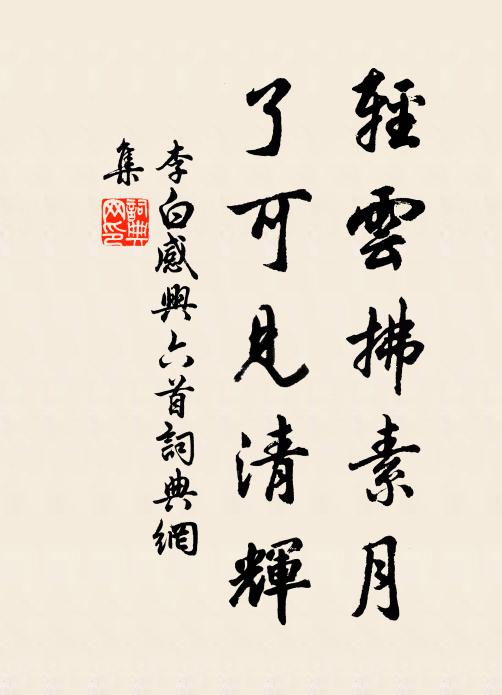 輕雲拂素月
了可見清輝
李白感興六首詞典網
集
詞典
網印